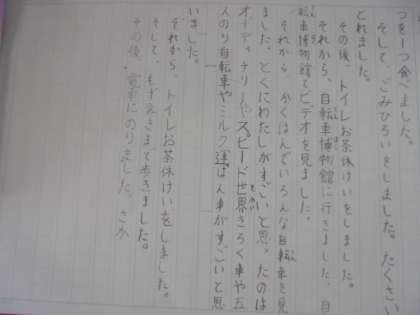 つを一つ食べました。
そして、ごみひろいをしました。たくさい
とれました。
その後、トイレお茶休けいをしました。
それから、自転車博物館に行きました。自
転車博物館でビデオを見ました。
それから、かくはんでいろんな自転車を見
ました。とくにわたしがすごいと思ったのは
オーディナリーやスピード世界きろく車や五
人のり自転車やミルク運ぱん車がすごいと思
いました。
それから、トイレお茶休けいをしました。
そして、もずえきまで歩きました。
その後、電車にのりました。さか